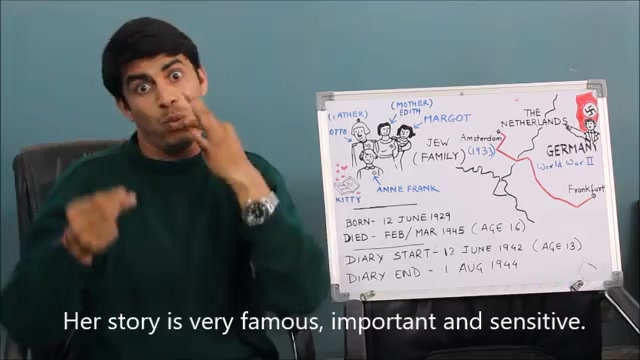 (MOTHER)
EDITH
(FATHER)
OTTO
MARGOT
ANNE FRANK
KITTY
JEW
(FAMILY)
THE
NETHERLANDS
Amsterdam
(1933)
GERMANY
World War II
Frankfurt
BORN- 12 JUNE 1929
DIED - FEB/MAR 1945 (AGE 16)
DIARY START- 12 JUNE 1942 (AGE 13)
DIARY END - 1 AUG 1944
Her story is very famous, important and sensitive.